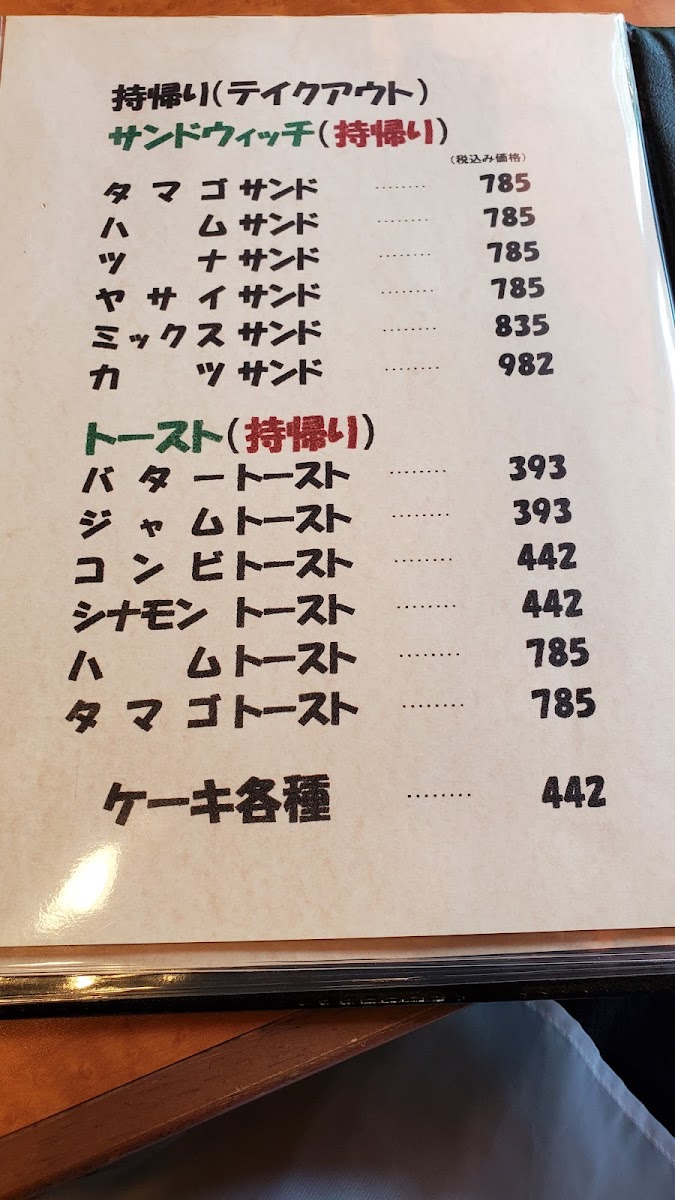 持帰り(テイクアウト)
サンドウィッチ(持帰り)
(税込み価格)
タマゴサンド ········ 785
ハムサンド ········ 785
ツナサンド ········ 785
ヤサイサンド ········ 785
ミックスサンド ········ 835
カツサンド ········ 982
トースト(持帰り)
バタートースト ········ 393
ジャムトースト ········ 393
コンビトースト ········ 442
シナモントースト ········ 442
ハムトースト ········ 785
タマゴトースト ········ 785
ケーキ各種 ········ 442